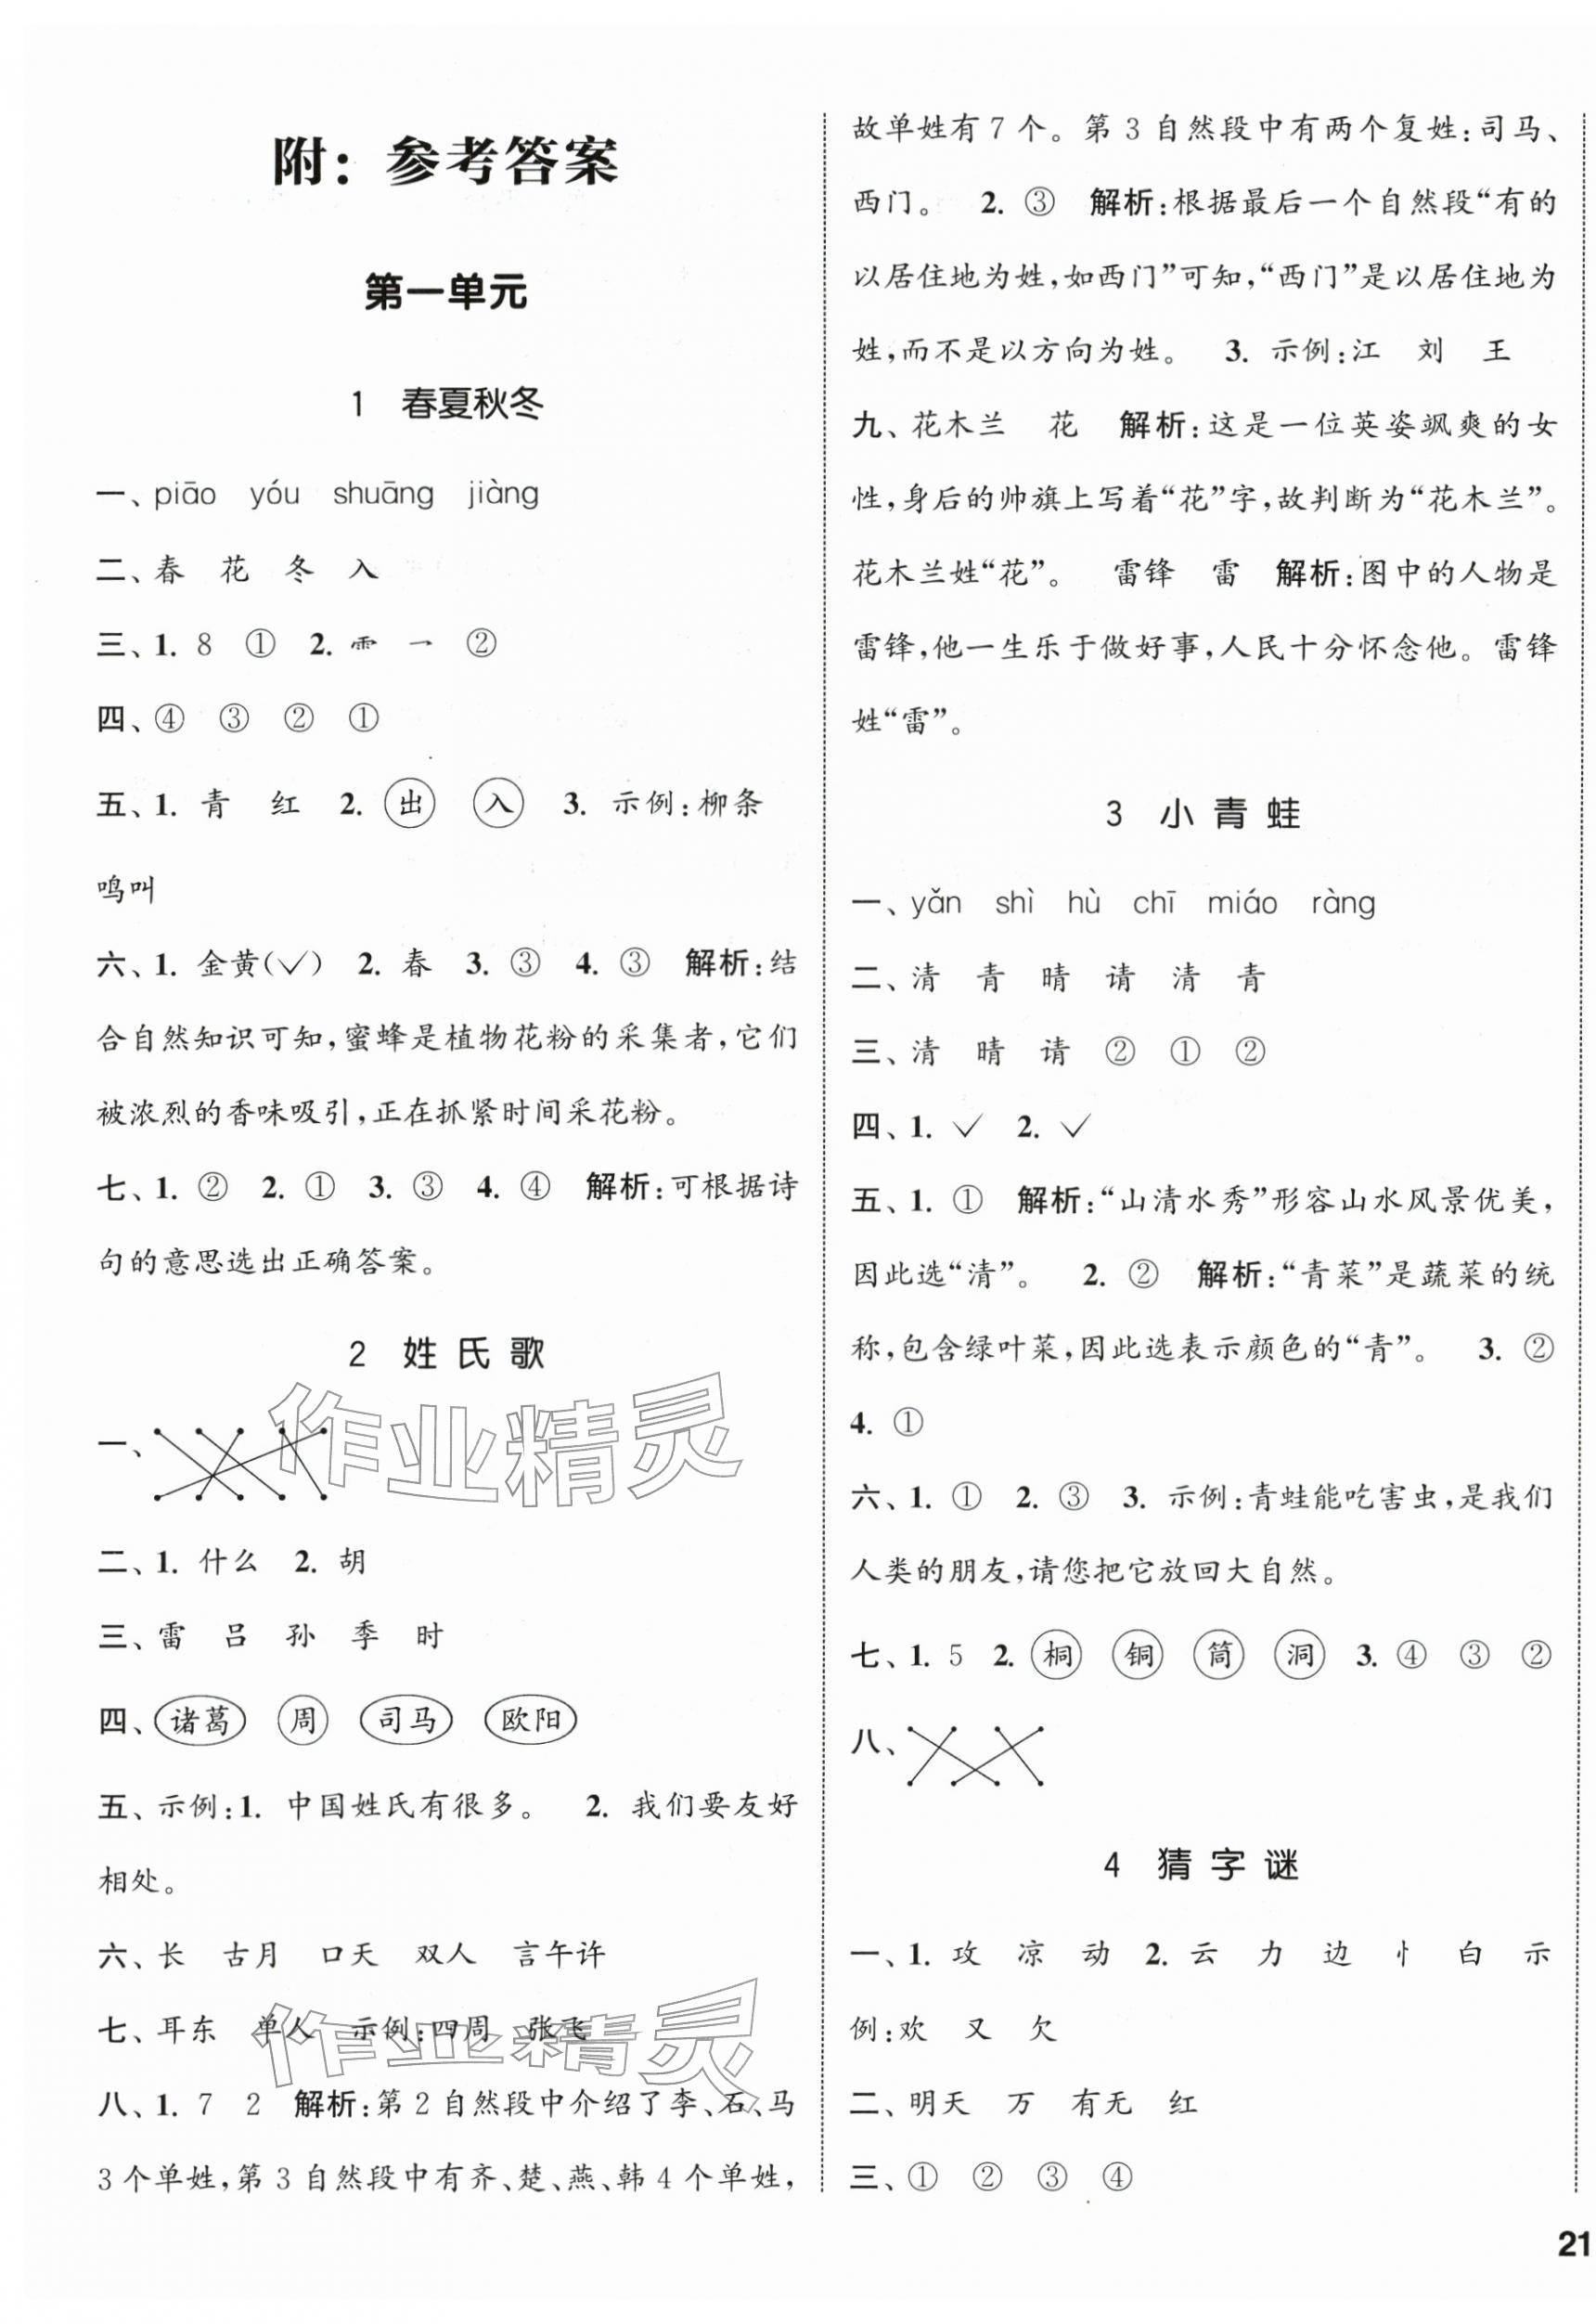 附：参考答案
第一单元
1 春夏秋冬
一、piāo yóu shuāng jiàng
二、春 花 冬 入
三、1. 8 ① 2. ⻗ ㇀ ②
四、④ ③ ② ①
五、1. 青 红 2. 出 入 3. 示例：柳条
鸣叫
六、1. 金黄(✓) 2. 春 3. ③ 4. ③ 解析：结
合自然知识可知，蜜蜂是植物花粉的采集者，它们
被浓烈的香味吸引，正在抓紧时间采花粉。
七、1. ② 2. ① 3. ③ 4. ④ 解析：可根据诗
句的意思选出正确答案。
2 姓氏歌
一、
作业精灵
二、1. 什么 2. 胡
三、雷 吕 孙 季 时
四、诸葛 周 司马 欧阳
五、示例：1. 中国姓氏有很多。 2. 我们要友好
相处。
六、长 古月 口天 双人 言午许
七、耳东 单人 示例：四周 张飞
作业精灵
八、1. 7 2 解析：第2自然段中介绍了李、石、马
3个单姓，第3自然段中有齐、楚、燕、韩4个单姓，
故单姓有7个。第3自然段中有两个复姓：司马、
西门。 2. ③ 解析：根据最后一个自然段“有的
以居住地为姓，如西门”可知，“西门”是以居住地为
姓，而不是以方向为姓。 3. 示例：江 刘 王
九、花木兰 花 解析：这是一位英姿飒爽的女
性，身后的帅旗上写着“花”字，故判断为“花木兰”。
花木兰姓“花”。 雷锋 雷 解析：图中的人物是
雷锋，他一生乐于做好事，人民十分怀念他。雷锋
姓“雷”。
3 小青蛙
一、yǎn shì hù chī miáo ràng
二、清 青 晴 请 清 青
三、清 晴 请 ② ① ②
四、1. ✓ 2. ✓
五、1. ① 解析：“山清水秀”形容山水风景优美，
因此选“清”。 2. ② 解析：“青菜”是蔬菜的统
称，包含绿叶菜，因此选表示颜色的“青”。 3. ②
4. ①
六、1. ① 2. ③ 3. 示例：青蛙能吃害虫，是我们
人类的朋友，请您把它放回大自然。
七、1. 5 2. 桐 铜 筒 洞 3. ④ ③ ②
八、
4 猜字谜
一、1. 攻 凉 动 2. 云 力 边 忄 白 示
例：欢 又 欠
二、明天 万 有无 红
三、① ② ③ ④
21